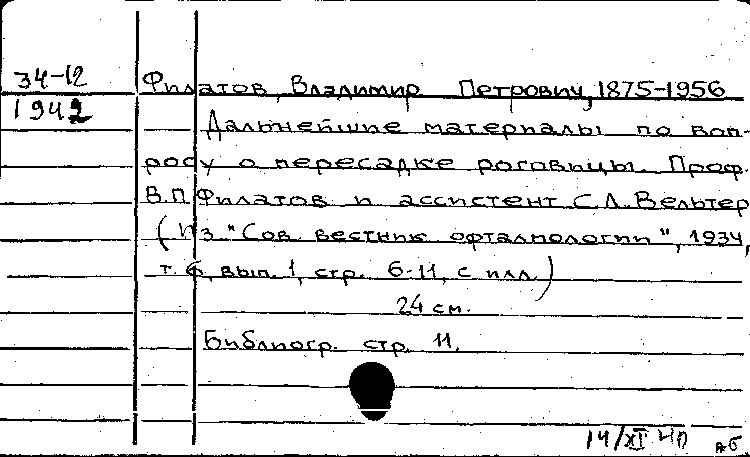 34-12
1942
Филатов, Владимир Петрович, 1875-1956
Дальнейшие материалы по воп-
росу о пересадке роговицы. Проф.
В.П. Филатов и ассистент С.Л. Вельтер
(Из "Сов. вестник офталмологии", 1934,
т. 6, вып. 1, стр. 6-11, с илл.)
24 см.
Библиогр. стр. 11.
14/XI
аб